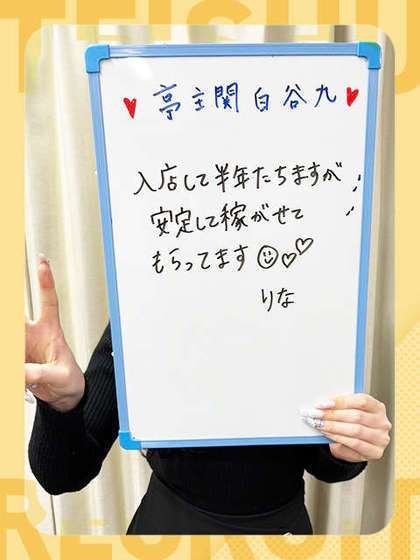 TEISHU
亭主関白谷九
入店して半年たちますが
安定して稼がせて
もらってます
りな
RECRUIT